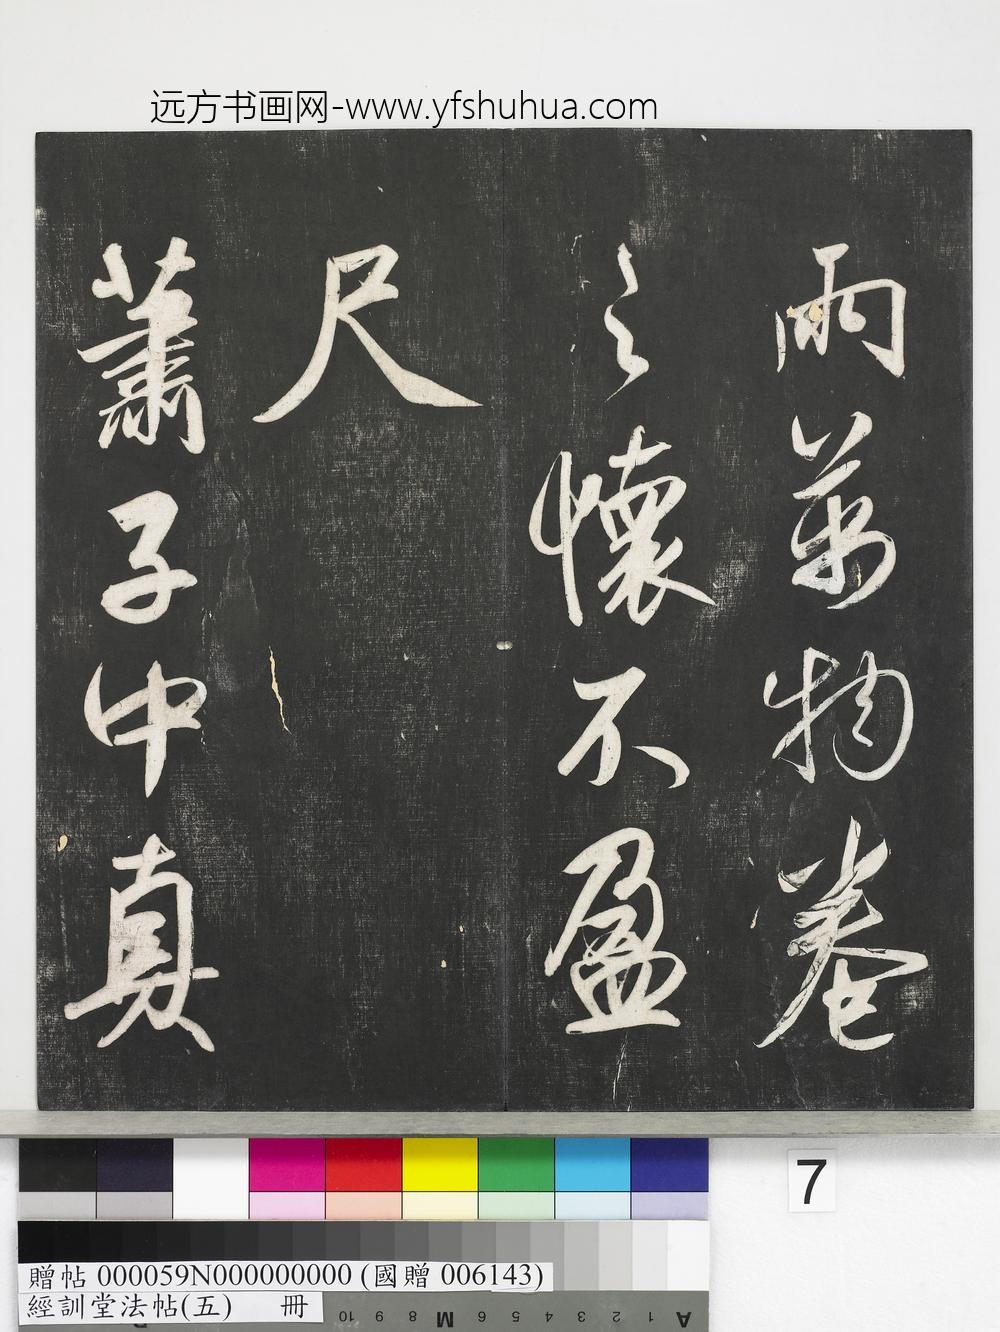 远方书画网-www.yfshuhua.com
雨萬物卷
之懷不盈
尺
蕭子中真
7
贈帖 000059N000000000 (國贈 006143)
經訓堂法帖(五) 冊
10 9 8 M 6 5 4 3 2 1 A